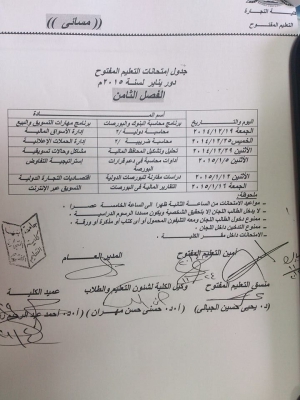 كلية التجارة
التعليم المفتوح
(( مسائى ))
جدول إمتحانات التعليم المفتوح
دور يناير لسنة ٢٠١٥م
الفصل الثامن
اليوم والتاريخ اسم المادة
برنامج محاسبة البنوك والبورصات برنامج مهارات التسويق والبيع
الجمعة ٢٠١٤/١٢/١٩ محاسبة دولية إدارة الأسواق المالية
الخميس ٢٠١٤/١٢/٢٥ محاسبة ضريبية إدارة الحملات الإعلانية
الأثنين ٢٠١٤/١٢/٢٩ تحليل وتشكيل المحافظ المالية مشاكل وحالات تسويقية
الأثنين ٢٠١٥/١/٥ أدوات محاسبية فى دعم قرارات البورصة إستراتيجية التفاوض
الأثنين ٢٠١٥/١/١٢ دراسات مقارنة للبورصات الدولية إقتصاديات التجارة الدولية
الجمعة التقارير المالية فى البورصات التسويق عبر الإنترنت
ملحوظة:
- مواعيد الأمتحانات من الساعة الثانية ظهرا إلى الساعة الخامسة عصرا
- لا يدخل الطالب اللجان إلا بتحقيق الشخصية ويكون مسددا الرسوم الدراسية.
- ممنوع دخول الطالب اللجان ومعه التليفون المحمول أو أى كتاب أو مذكرة أو ورقة.
- ممنوع التدخين داخل اللجان.
- الأمتحانات داخل مقر الكلية.
أمين التعليم المفتوح المدير العام
منسق التعليم المفتوح وكيل الكلية لشئون التعليم والطلاب عميد الكلية
(د/ يحيى حسين الجبالى) (أ.د/ حسنى حسن مهران)